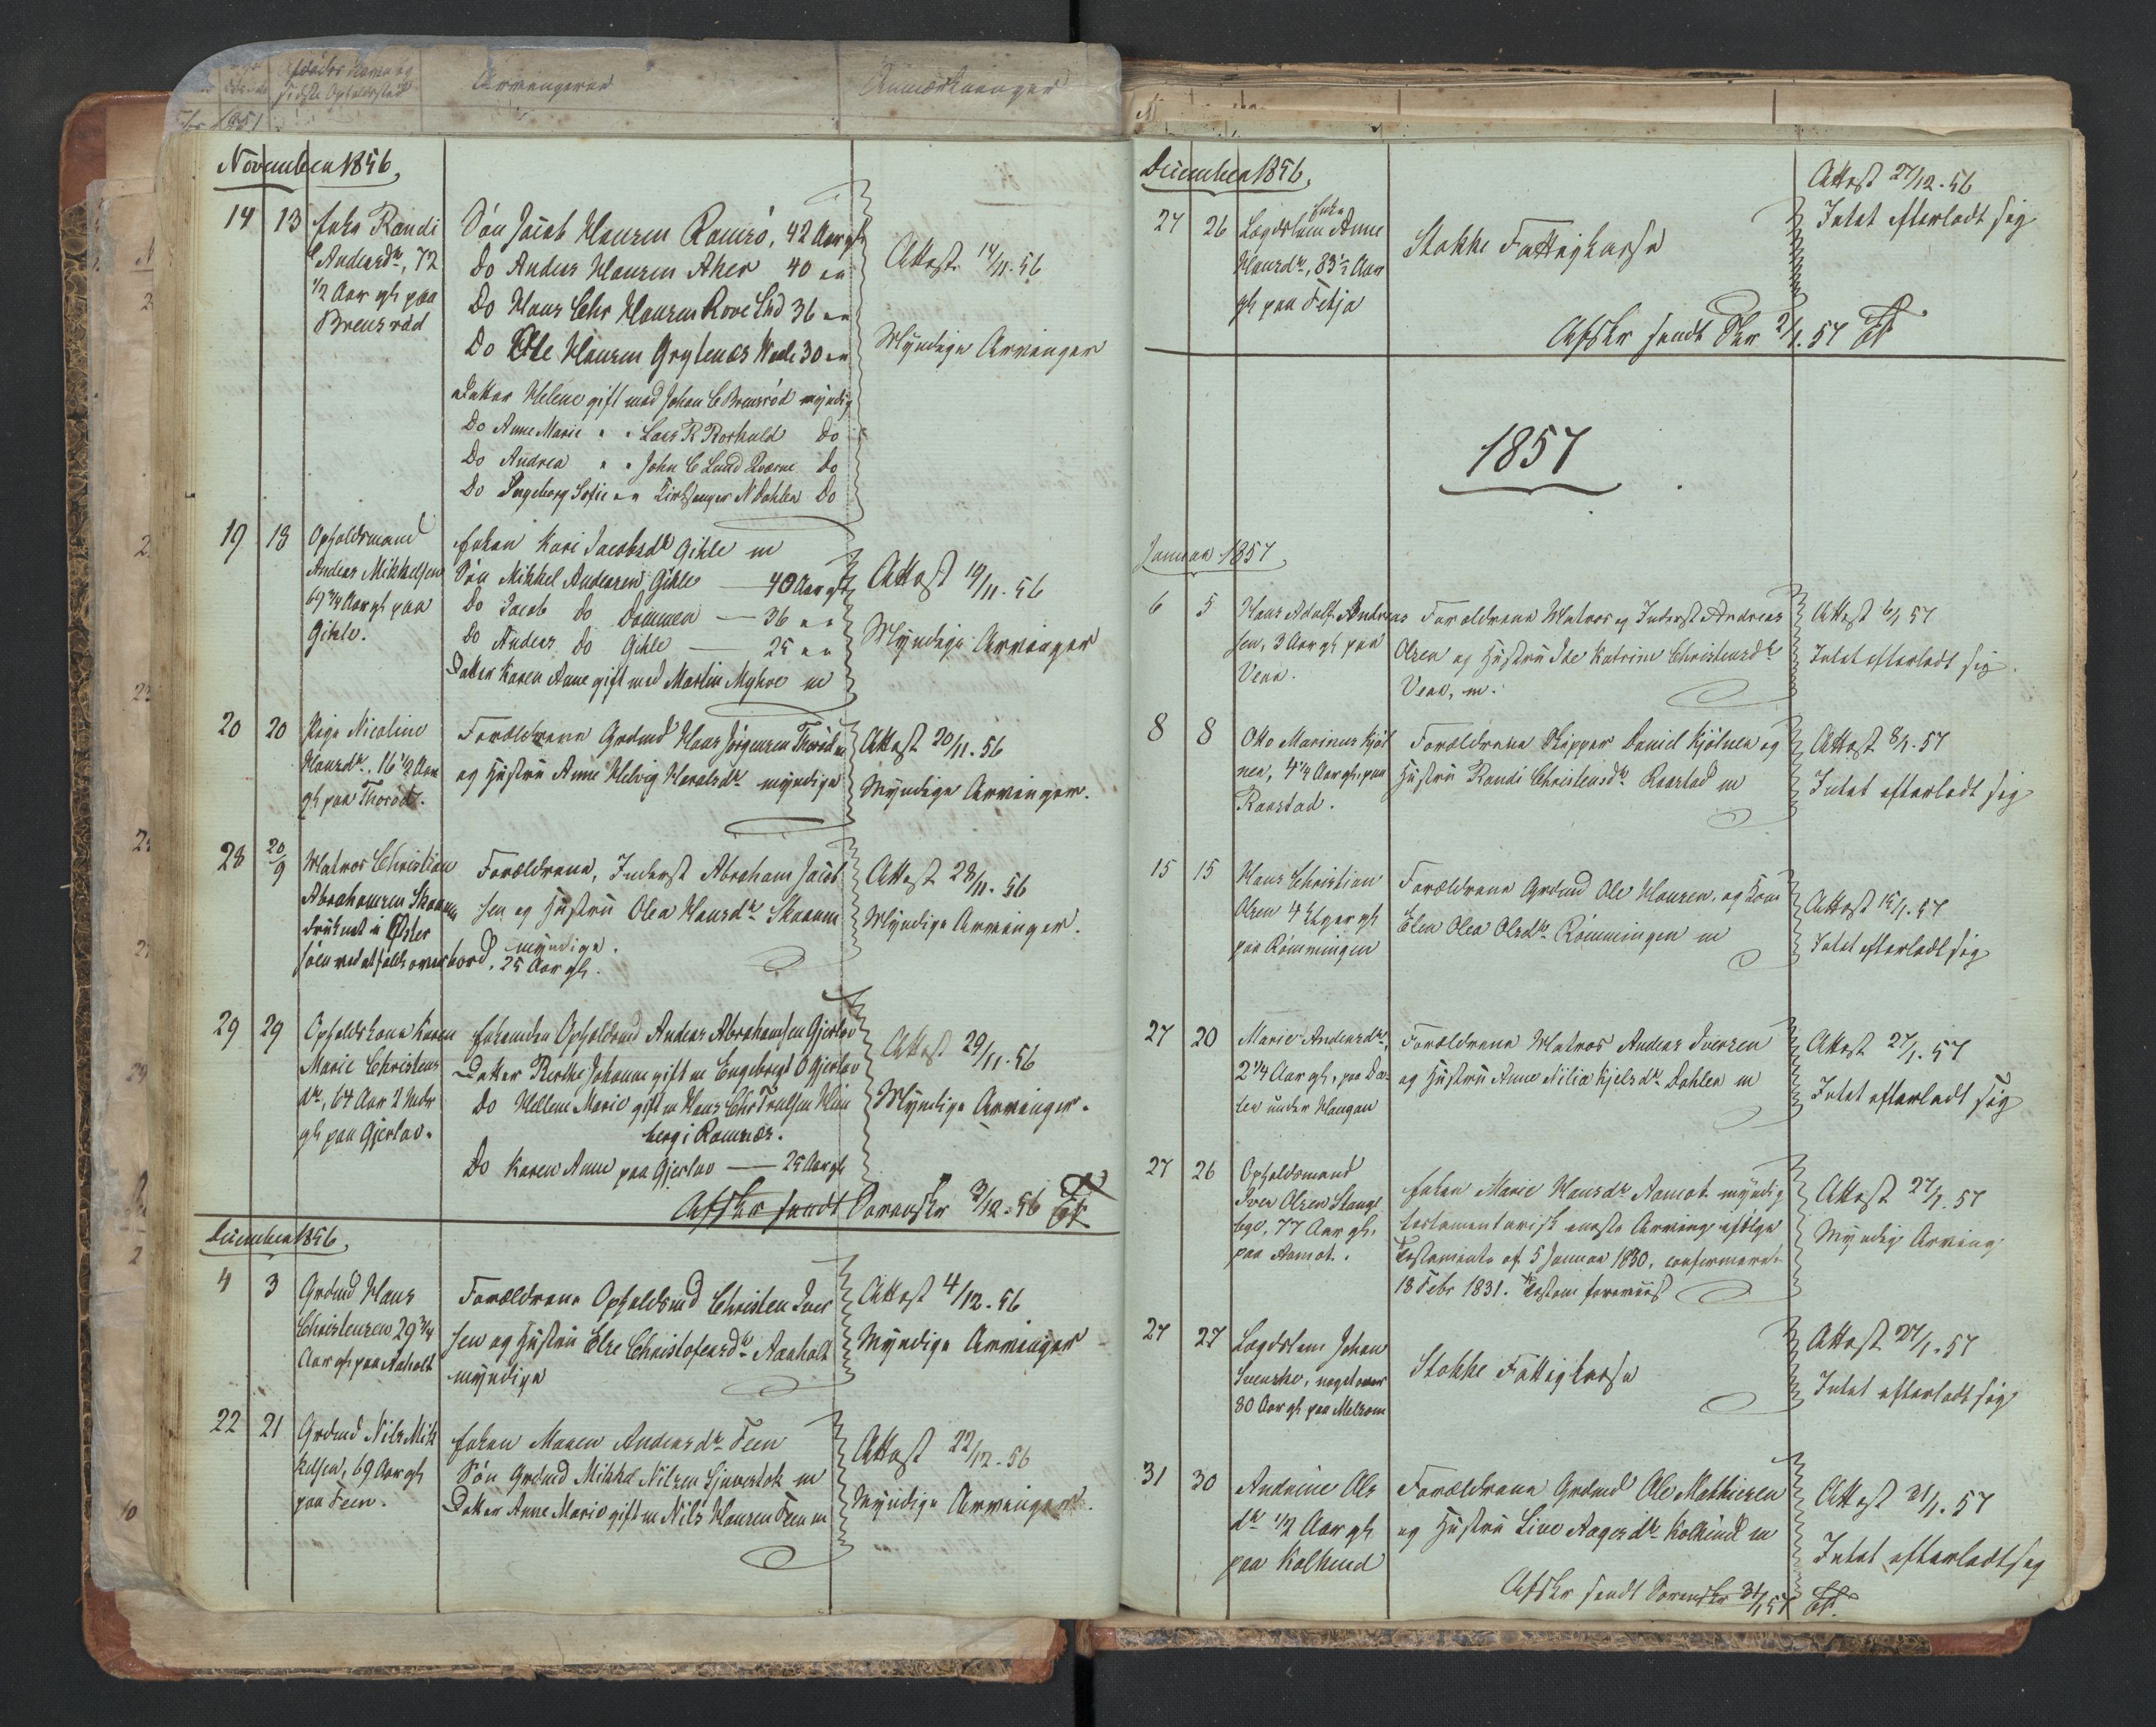 Afdødes Navn og
sidste Opholdssted
Arvingerne
Anmærkninger
1851
November 1856,
14 13 Enke Randi
Andersdr, 72
1/2 Aar gl paa
Brensrød
Søn Jacob Hansen Ramsø, 42 Aar gl
Do Anders Hansen Aker 40 " "
Do Hans Chr Hansen Rove Lhd 36 " "
Do Ole Hansen Grytenæs Nede 30 " "
Datter Helene gift med Johan C Brensrød myndig
Do Anne Marie " " Lars R Rorkuld Do
Do Andrea " " John C Lund Do
Do Ingeborg Sofie " " Kirksanger N Dahlen Do
Attest 14/11.56
Myndige Arvinger
19 18 Opholdsmand
Anders Mikkelsen
69 3/4 Aar gl paa
Gihle.
Enken Kari Jacobsdr Gihle m
Søn Mikkel Andersen Gihle — 40 Aar gl
Do Jacob Do Dommen — 36 " "
Do Anders Do Gihle — 25 " "
Datter Karen Anne gift med Martin Myhre m
Attest 19/11.56
Myndige Arvinger
20 20 Pige Nicoline
Hansdr, 16 1/2 Aar
gl paa Thorød.
Forældrene Grdmd Hans Jörgensen Thorød m
og Hustru Anne Helvig Haralsdr myndige
Attest 20/11.56
Myndige Arvinger.
28 20/9 Matros Christian
Abrahamsen Skaanm
druknet i Øster
søen ved at falde overbord, 25 Aar gl.
Forældrene, Inderst Abraham Jacob
sen og Hustru Olea Hansdr Skaanm
myndige.
Attest 28/11.56
Myndige Arvinger.
29 29 Opholdskone Karen
Marie Christens
dr, 64 Aar 2 Mdr
gl paa Gjerlov.
Enkemden Opholdsmd Anders Abrahamsen Gjerlov
Datter Berthe Johanne gift m Engebregt O Gjerlov
Do Hellene Marie gift m Hans Chr Trulsen Klin
berg i Ramnæs.
Do Karen Anne paa Gjerlov — 25 Aar gl
Attest 29/11.56
Myndige Arvinger.
Afskr sendt Sorenskr 3/12.56
December 1856,
4 3 Grdmd Hans
Christensen 29 3/4
Aar gl paa Aaholt
Forældrene Opholdsmd Christen Iver
sen og Hustru Else Christofersdr Aaholt
myndige
Attest 4/12.56
Myndige Arvinger
22 21 Grdmd Nils Mik
kelsen, 69 Aar gl
paa Feen.
Enken Maren Andersdr Feen
Søn Grdmd Mikkel Nilsen Sjuestok m
Datter Anne Marie gift m Nils Hansen Feen m
Attest 22/12.56
Myndige Arvinger.
December 1856,
27 26 Lægdslem Enke Anne
Hansdr, 83 1/2 Aar
gl paa Fetja
Stokke Fattigkasse
Attest 27/12.56
Intet efterladt sig
Afskr sendt Skr 2/1.57
1857
Januar 1857,
6 5 Hans Adolf Andreas
sen, 3 Aar gl paa
Vear.
Forældrene Matros og Inderst Andreas
Olsen og Hustru Ide Katrine Christensdr
Vear, m.
Attest 6/1 57
Intet efterladt sig.
8 8 Otto Marinus Kjöl
ner, 4 1/2 Aar gl, paa
Raastad.
Forældrene Skipper Daniel Kjölner og
Hustru Randi Christensdr Raastad m
Attest 8/1.57
Intet efterladt sig
15 15 Hans Christian
Olsen 4 Uger gl
paa Römmingen
Forældrene Grdmd Ole Hansen, og Kone
Elen Olea Olsdr Römmingen m
Attest 15/1.57
Intet efterladt sig
27 20 Marie Andersdr,
2 1/4 Aar gl, paa Da-
len under Haugan
Forældrene Matros Anders Iversen
og Hustru Anne Nilia Kjelsdr Dahlen m
Attest 27/1.57
Intet efterladt sig
27 26 Opholdsmand
Iver Olsen Stange
bye, 77 Aar gl,
paa Aamot.
Enken Marie Hansdr Aamot myndig
testamentarisk eneste Arving ifølge
Testamente af 5 Januar 1830, confirmeret
18 Febr 1831. Testam foreviist
Attest 27/1.57
Myndig Arving
27 27 Lægdslem Johan
Svenske, noget over
80 Aar gl paa Melsom
Stokke Fattigkasse
Attest 27/1.57
Intet efterladt sig
31 30 Andrine Ols
dr 1/2 Aar gl
paa Kolkind
Forældrene Grdmd Ole Mathisen
og Hustru Line Aagesdr Kolkind m
Attest 31/1.57
Intet efterladt sig
Afskr sendt Sorenskr 31/1 57